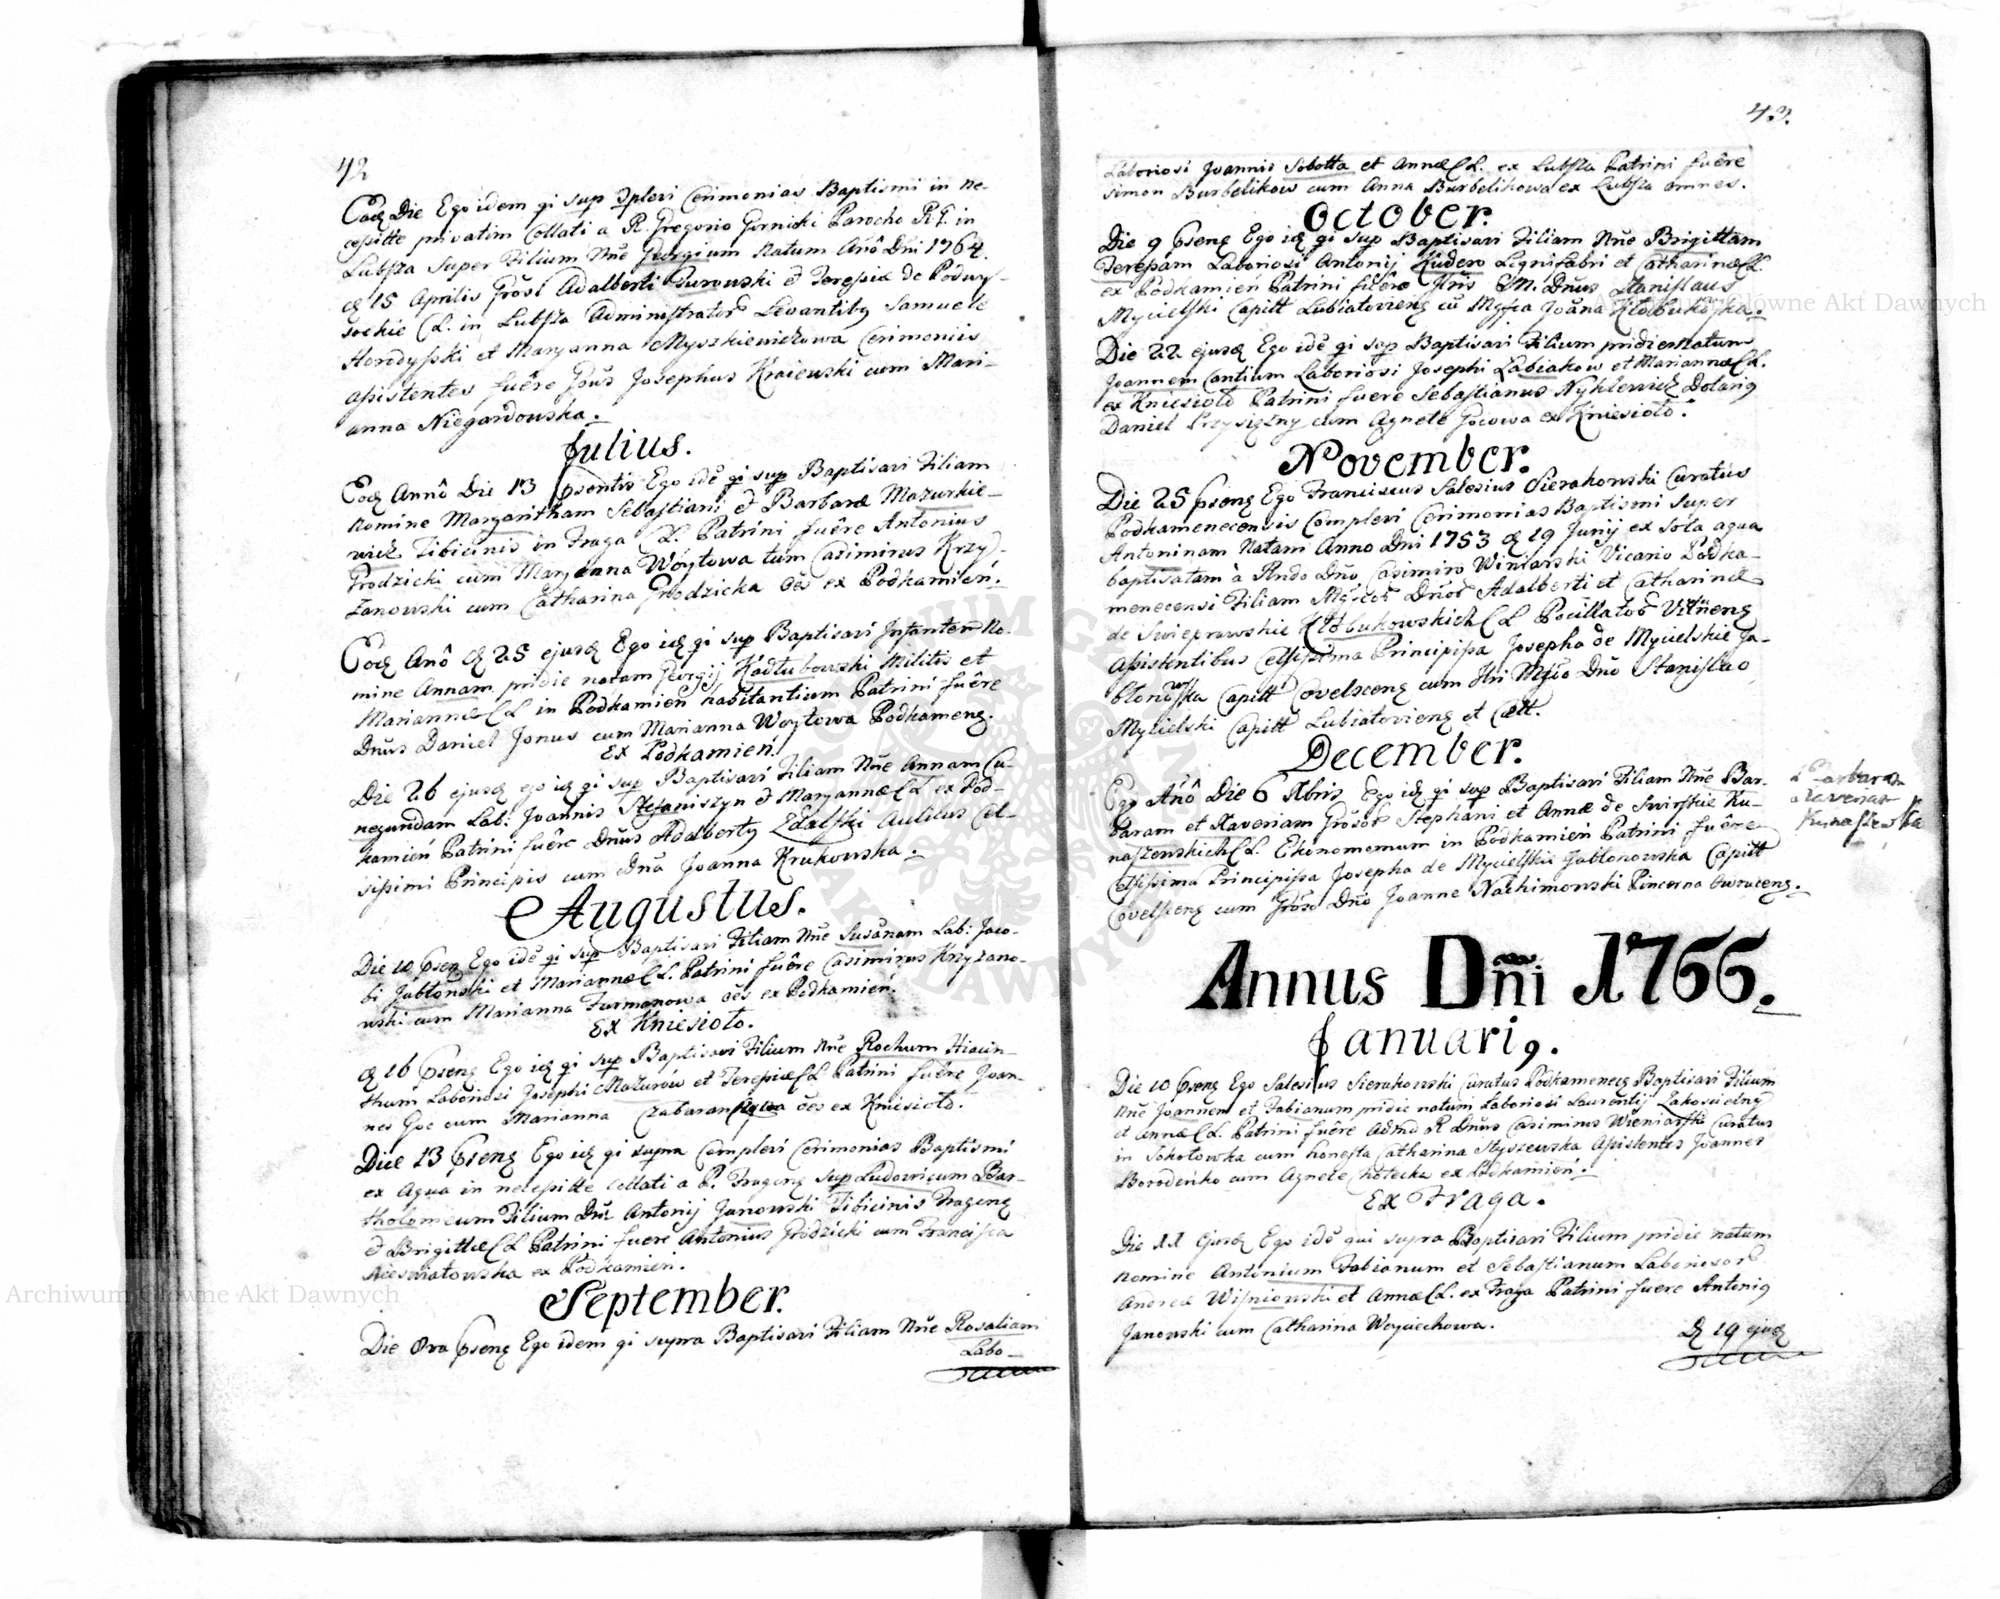 42
Eodq Die Ego idem qi sup Spleri Cerimonias Baptismi in ne-
cessitte privatim Collati a R. Gregorio Gornicki Parocho R.G. in
Lubsza Super Filium Nñe Georgium Natum Anô Dni 1764.
dq 15 Aprilis Grosi Adalberti Turowski & Teressiæ de Podwy-
sockie CL. in Lubsza Administrator Levantibq Samuele
Horodyski et Maryanna Myszkiewiczowa Cerimoniis
assistentes fuêre Gsus Josephus Kraiewski cum Mari-
anna Niegardowska.
Julius.
Eodq Annô Die 13 psentis Ego idê qi sup Baptisavi Filiam
nomine Margaritham Sebastiani & Barbaræ Mazurkie-
wicz Tibicinis in Fraga CL. Patrini fuêre Antonius
Grodzicki cum Maryanna Woytowa tum Casimirus Krzy-
zanowski cum Catharina Grodzicka oês ex Podkamień.
Eodq Anô dq 25 ejusdq Ego idq qi sup Baptisavi Infantem No-
mine Annam pridie natam Georgij Kadłubowski Militis et
Mariannæ CL in Podkamień habitantium Patrini fuêre
Dnus Daniel Jonus cum Marianna Woytowa Podkameng.
Ex Podkamień.
Die 26 ejusdq ego idq qi sup Baptisavi Filiam Nñe Annam Cu-
negundam Lab: Joannis Stefaniszyn & Maryannæ CL ex Pod-
kamień Patrini fuêre Dnus Adalbertq Zdalski Aulicus Cel-
sissimi Principis cum Dna Joanna Krukowska.
Augustus.
Die 10 psenq Ego idê qi sup Baptisavi Filiam Nñe Susanam Lab: Jaco-
bi Jabłonski et Mariannæ CL. Patrini fuêre Casimirus Krzyzano-
wski cum Marianna Furmanowa oês ex Podkamień.
Ex Kniesioło.
dq 16 psenq Ego idq qi sup Baptisavi Filium Nñe Rochum Hiacin-
thum Laboriosi Josephi Mazurów et Teressiæ CL Patrini fuêre Joan-
nes Goc cum Marianna oês ex Kniesioło.
Die 13 psenq Ego idq qi supra Compleri Cerimonias Baptismi
ex Aqua in necessitte collati a P. Frageng sup Ludovicum Bar-
tholomeum Filium Dni Antonij Janowski Tibicinis Frageng
& Brigittæ CL Patrini fuere Antonius Grodzicki cum Francisca
Nieswiatowska ex Podkamień.
September.
Die 8va psenq Ego idem qi supra Baptisavi Filiam Nñe Rosaliam
Labo-
43.
Laboriosi Joannis Sobotta et Annæ CL. ex Lubsza Patrini fuêre
Simon Burbelikow cum Anna Burbelikowa ex Lubsza omnes.
October.
Die 9 psenq Ego idq qi sup Baptisavi Filiam Nñe Brigittam
Teresiam Laboriosi Antonij Kudero Lignifabri et Catharinæ CL.
ex Podkamień Patrini fuêre Illris M. Dnus Stanislaus
Mycielski Capitt Lubiatovieng cũ Mgfca Joâna Kłobukoska.
Die 22 ejusdq Ego idê qi sup Baptisavi Filium pridie Natum
Joannem Cantium Laboriosi Josephi Labiakow et Mariannæ CL.
ex Kniesioło Patrini fuere Sebastianus Nyklewicz Dolariq
Daniel Przysiężny cum Agnete Gocowa ex Kniesioło.
November.
Die 25 psenq Ego Franciscus Salesius Sierakowski Curatus
Podkamenecensis Compleri Cerimonias Baptismi super
Antoninam Natam Anno Dni 1753 dq 19 Junij ex sola aqua
baptisatam à Rndo Dño Casimiro Winiarski Vicario Podka-
menecensi Filiam Mgfcor Dñor Adalberti et Catharinæ
de Swieprawskie Kłobukowskich CL Pocillator
Assistentibus Celsissima Principissa Josepha de Mycielskie Ja-
błonowska Capitt Covelsceng cum Illri Mgfco Dño Stanislao
Mycielski Capitt Lubiatovieng et Cætt.
December.
Eodq Añô Die 6 Xbris Ego idq qi sup Baptisavi Filiam Nñe Bar-
baram et Xaveriam Grosor Stephani et Annæ de Swirskie Ku-
naszewskich CL. Ekonomorum in Podkamień Patrini fuêre
Celsissima Principissa Josepha de Mycielskie Jabłonowska Capitt
Covelsceng cum Groso Dño Joanne Nachimowski Pincerna Owruceng.
Barbara
Xaveria
Kunaszewska
Annus Dñi 1766.
Januariq.
Die 10 psenq Ego Salesius Sierakowski Curatus Podkameneceng Baptisavi Filium
Nñe Joannem et Fabianum pridie natum Laboriosi Laurentij Zakoscielny
et Annæ CL. Patrini fuêre Admd R. Dnus Casimirus Wieniarski Curatus
in Sokołowka cum honesta Catharina Styszewska Assistentes Joannes
Borodeńko cum Agnete Chotecka ex Podkamień.
Ex Fraga.
Die 11 Ejusdq Ego idê qui supra Baptisavi Filium pridie natum
Nomine Antonium Fabianum et Sebastianum Laboriosor
Andreæ Wisniowski et Annæ CL. ex Fraga Patrini fuere Antoniq
Janowski cum Catharina Woyciechowa.
dq 19 ejusdq
Archiwum Główne Akt Dawnych
Archiwum Główne Akt Dawnych